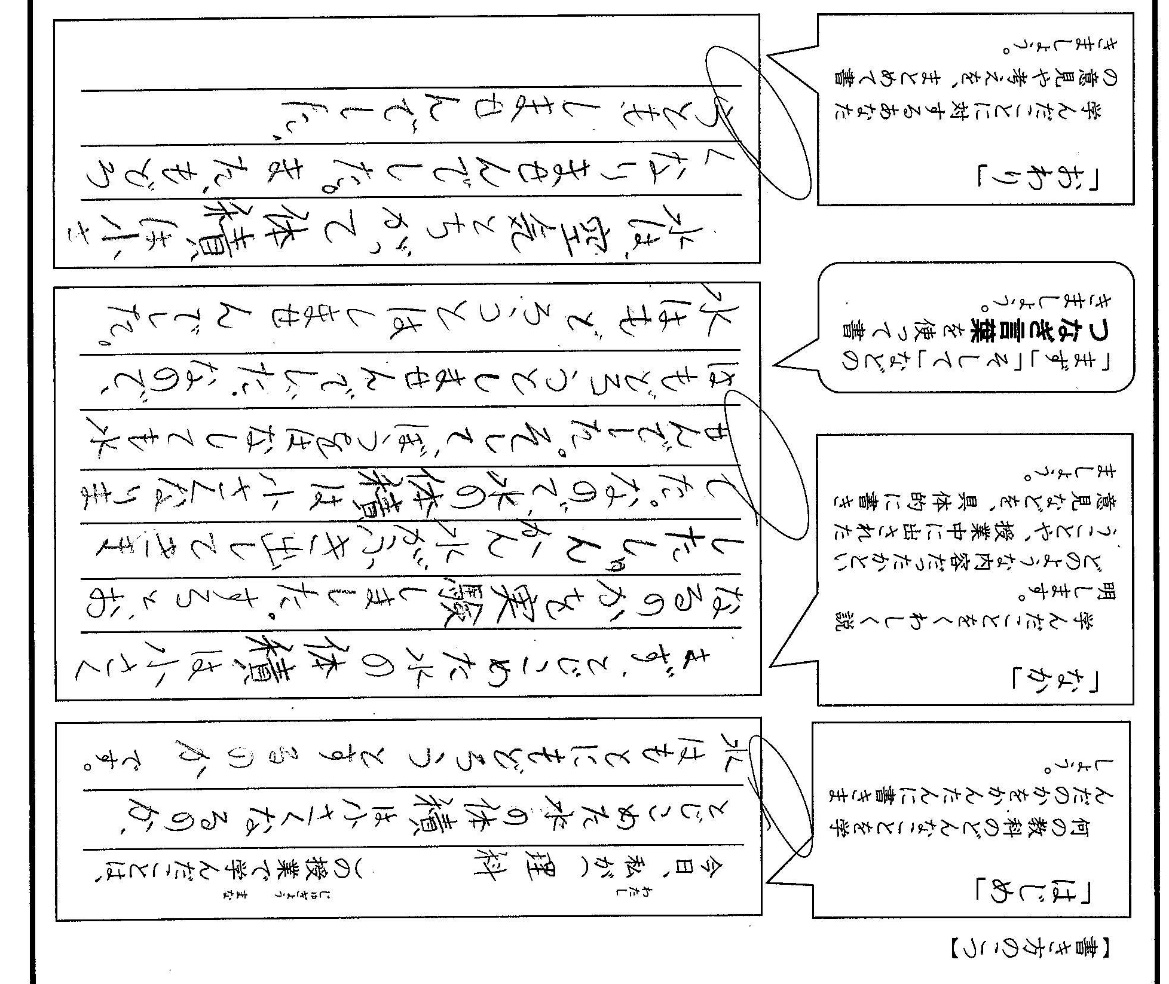 【書き方のこつ】
「はじめ」
何の教科のどんなことを学
んだのかをかんたんに書きま
しょう。
わたし じゅぎょう まな
今日、私が(理科)の授業で学んだことは、
とじこめた水の体積は小さくなるのか、
水はもとにもどろうとするのか、です。
「なか」
学んだことをくわしく説
明します。
どのような内容だったかとい
うことや、授業中に出された
意見などを、具体的に書き
ましょう。
「まず」「そして」などの
つなぎ言葉を使って書
きましょう。
まず、とじこめた水の体積は小さく
なるのかを実験しました。するとお
したしゅんかん水がふき出してきま
した。なので、水の体積は小さくなりま
せんでした。そして、ぼうをはなしても水
はもどろうとしませんでした。なので、
水はもどろうとはしませんでした。
「おわり」
学んだことに対するあなた
の意見や考えを、まとめて書
きましょう。
水は、空気とちがって体積は小さ
くなりませんでした。また、もどろ
うともしませんでした。